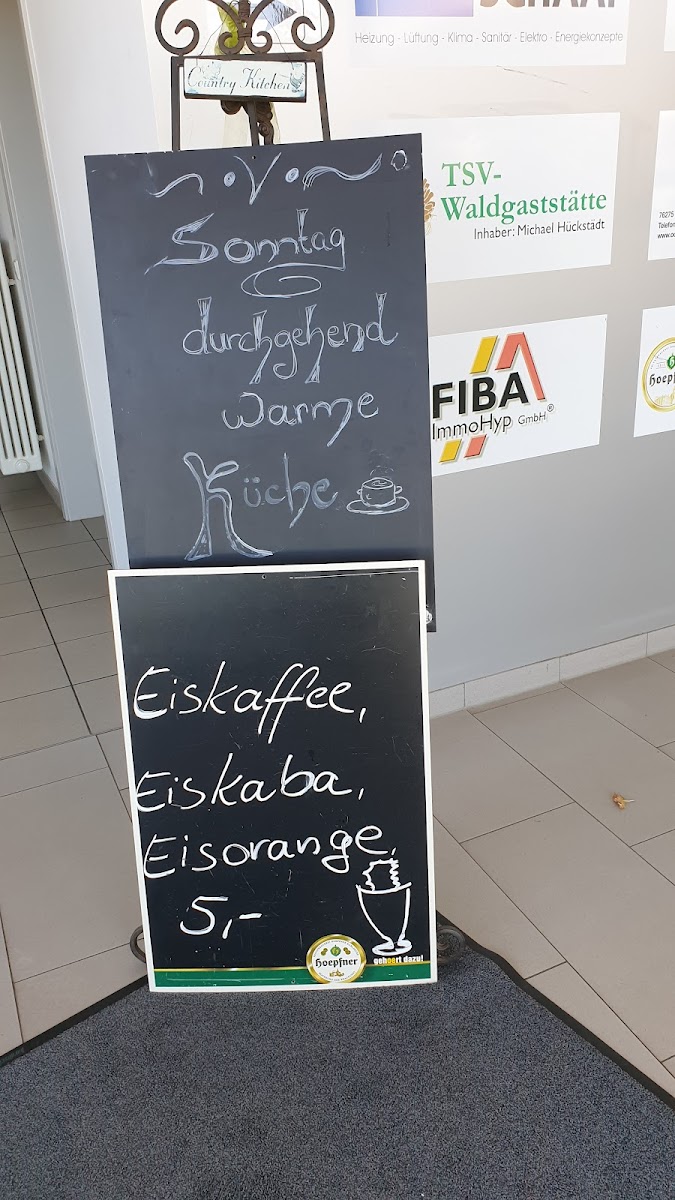 SCHAAF
Heizung - Lüftung - Klima - Sanitär - Elektro - Energiekonzepte
Country Kitchen
TSV-
Waldgaststätte
Inhaber: Michael Hückstädt
76275
Telefon
Sonntag
durchgehend
warme
Küche
FIBA
ImmoHyp GmbH®
Eiskaffee,
Eiskaba,
Eisorange,
5,-
Hoepfner
gehoert dazu!